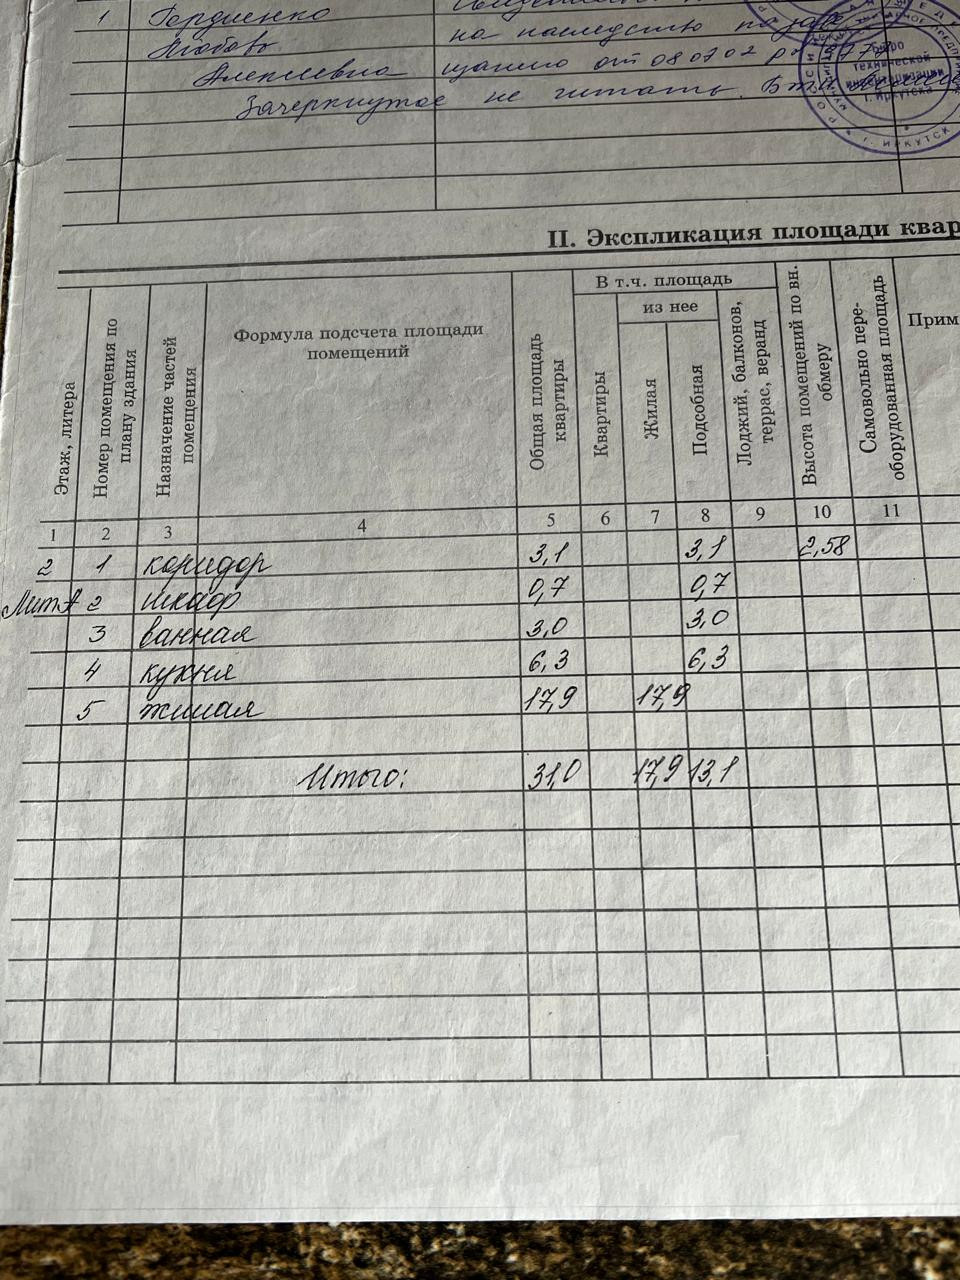 1 Гордиенко
Любовь на наследство по заве
Алексеевна щанию от 080702 р
Зачеркнутое не читать.
Бюро
технической
инвентаризации
г. Иркутска
г. ИРКУТСК
II. Экспликация площади квар
Этаж, литера
Номер помещения по плану здания
Назначение частей помещения
Формула подсчета площади
помещений
Общая площадь квартиры
В т.ч. площадь
из нее
Квартиры
Жилая
Подсобная
Лоджий, балконов, террас, веранд
Высота помещений по вн. обмеру
Самовольно пере-
оборудованная площадь
Прим
1 2 3 4 5 6 7 8 9 10 11
2 1 коридор 3,1 3,1 2,58
Лит А 2 шкаф 0,7 0,7
3 ванная 3,0 3,0
4 кухня 6,3 6,3
5 жилая 17,9 17,9
Итого: 31,0 17,9 13,1